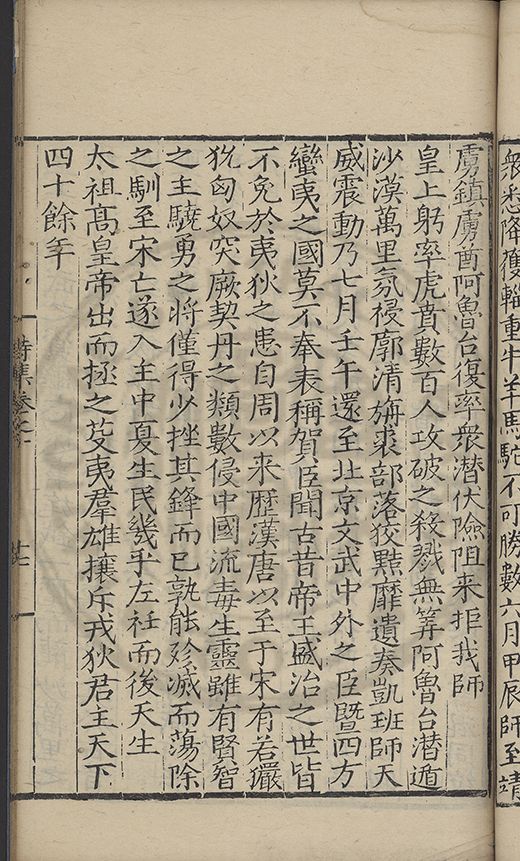 衆悉降獲輜重牛羊馬駝不可勝數六月甲辰師至靖
虜鎮虜酋阿魯台復率衆潜伏險阻来拒我師
皇上躬率虎賁數百人攻破之殺戮無筭阿魯台潜遁
沙漠萬里氛祲廓清旃裘部落狡黠靡遺奏凱班師天
威震動乃七月壬午還至北京文武中外之臣暨四方
蠻夷之國莫不奉表稱賀臣聞古昔帝王盛治之世皆
不免於夷狄之患自周以来歷漢唐以至于宋有若玁
狁匈奴突厥契丹之類數侵中國流毒生靈雖有賢智
之主驍勇之将僅得少挫其鋒而已孰能殄滅而蕩除
之馴至宋亡遂入主中夏生民幾乎左衽而後天生
太祖高皇帝出而拯之芟夷羣雄攘斥戎狄君主天下
四十餘年
詩集卷之一